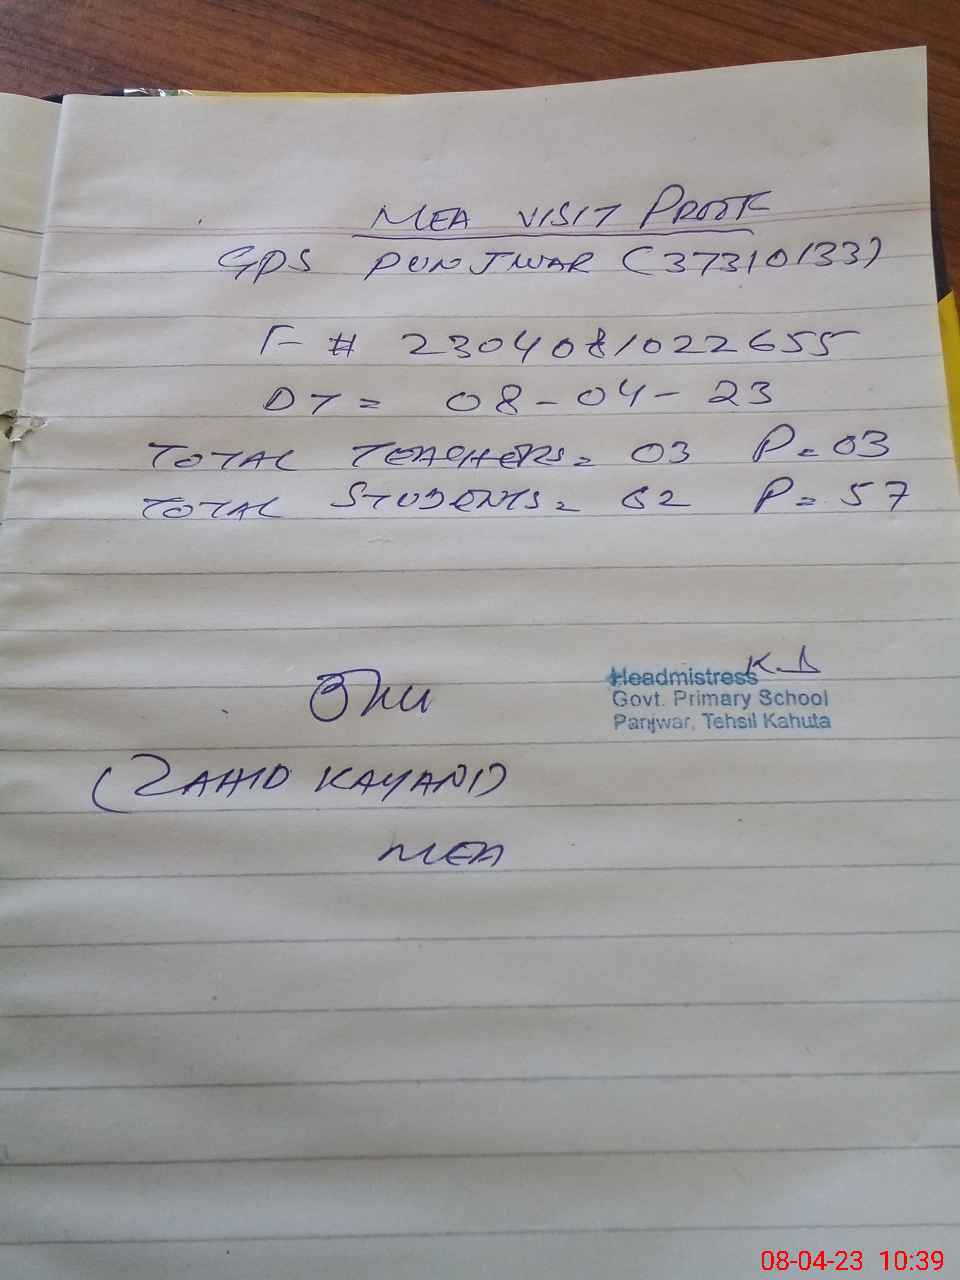 MEA VISIT PROOF
GPS PUNJWAR (37310133)
F # 2304081022655
DT = 08-04-23
TOTAL TEACHERS = 03 P = 03
TOTAL STUDENTS = 62 P = 57
Headmistress
Govt. Primary School
Panjwar, Tehsil Kahuta
(ZAHID KAYANI)
MEA
08-04-23 10:39